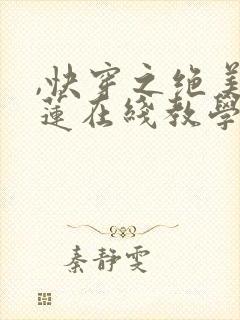 ,快穿之绝美
蓮在綫教學
秦静雯